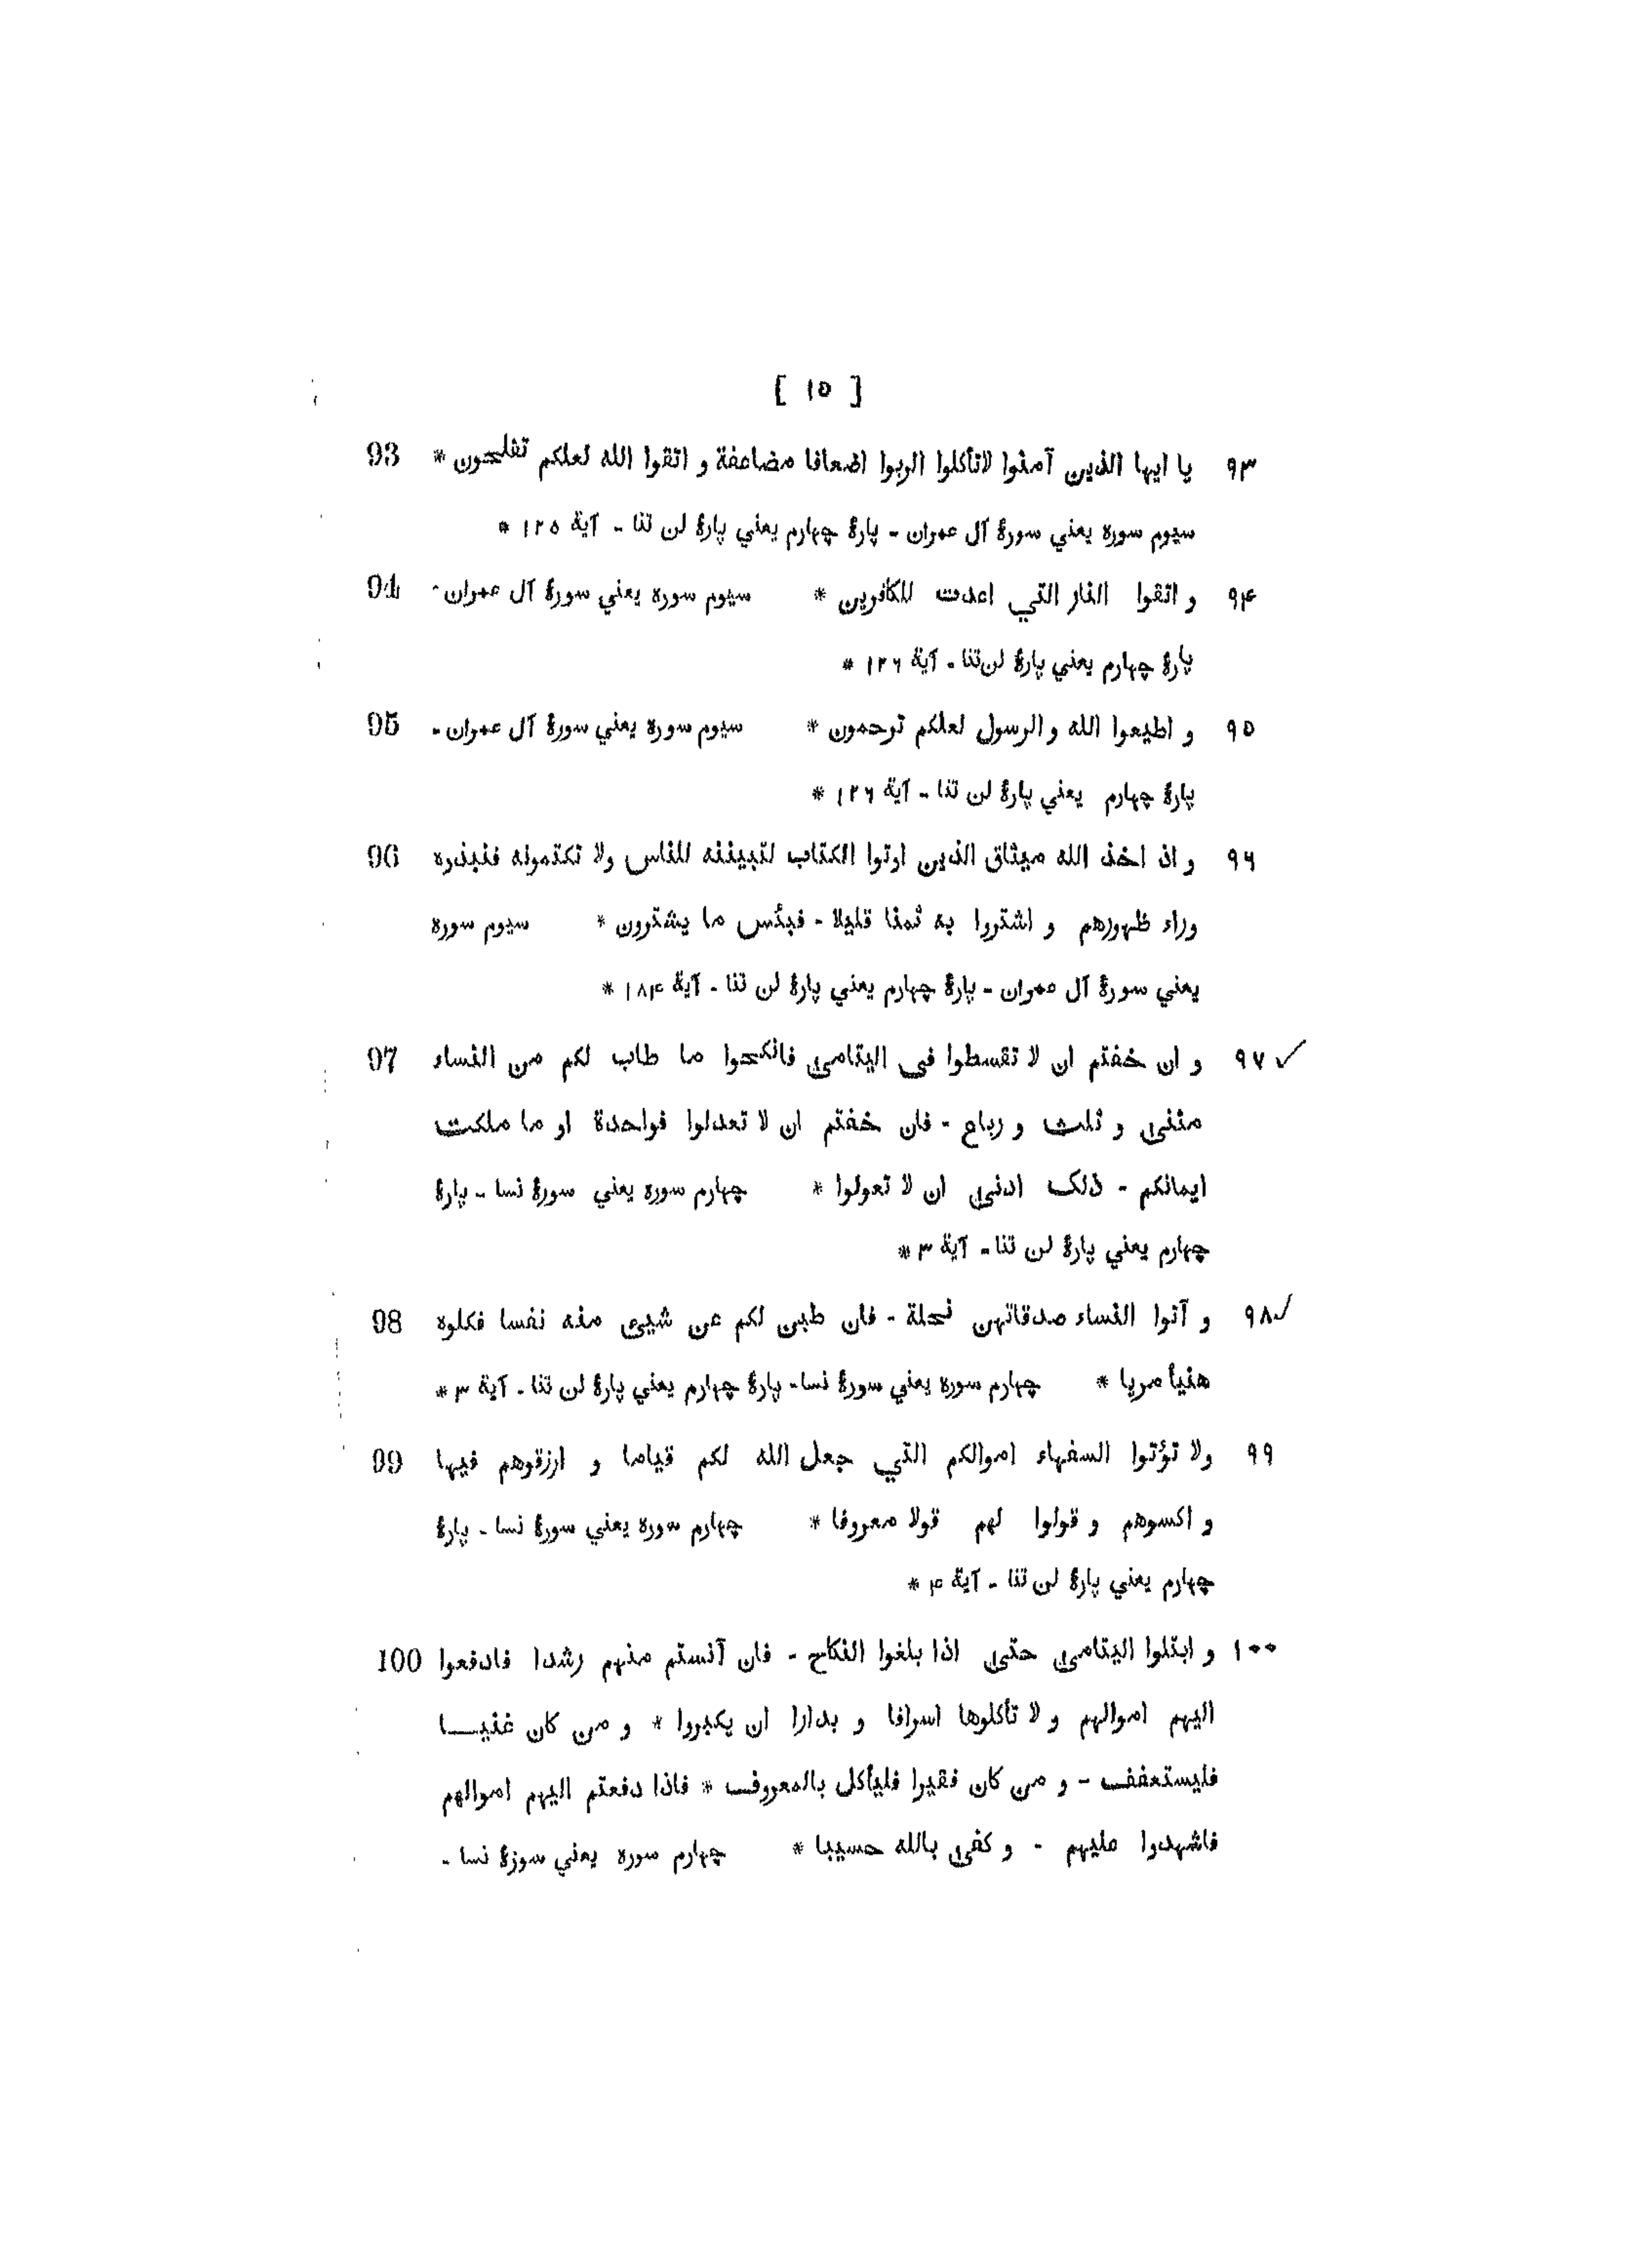 [ ١٥ ]
٩٣ يا ايها الذين آمنوا لاتأكلوا الربوا اضعافا مضاعفة و اتقوا الله لعلكم تفلحون * 93
سيوم سوره يعني سورۀ آل عمران - پارۀ چهارم يعني پارۀ لن تنا - آية ١٢٥ *
٩۴ و اتقوا النار التي اعدت للكافرين * سيوم سوره يعني سورۀ آل عمران - 94
پارۀ چهارم يعني پارۀ لن تنا - آية ١٢٦ *
٩٥ و اطيعوا الله و الرسول لعلكم ترحمون * سيوم سوره يعني سورۀ آل عمران - 95
پارۀ چهارم يعني پارۀ لن تنا - آية ١٢٦ *
٩٦ و اذ اخذ الله ميثاق الذين اوتوا الكتاب لتبيننه للناس ولا تكتمونه فنبذوه 96
وراء ظهورهم و اشتروا به ثمنا قليلا - فبئس ما يشترون * سيوم سوره
يعني سورۀ آل عمران - پارۀ چهارم يعني پارۀ لن تنا - آية ١٨۴ *
٩٧ و ان خفتم ان لا تقسطوا فى اليتامى فانكحوا ما طاب لكم من النساء 97
مثنى و ثلث و رباع - فان خفتم ان لا تعدلوا فواحدة او ما ملكت
ايمانكم - ذلك ادنى ان لا تعولوا * چهارم سوره يعني سورۀ نسا - پارۀ
چهارم يعني پارۀ لن تنا - آية ٣ *
٩٨ و آتوا النساء صدقاتهن نحلة - فان طبن لكم عن شيىء منه نفسا فكلوه 98
هنيأ مريا * چهارم سوره يعني سورۀ نسا - پارۀ چهارم يعني پارۀ لن تنا - آية ٣ *
٩٩ ولا تؤتوا السفهاء اموالكم التي جعل الله لكم قياما و ارزقوهم فيها 99
و اكسوهم و قولوا لهم قولا معروفا * چهارم سوره يعني سورۀ نسا - پارۀ
چهارم يعني پارۀ لن تنا - آية ۴ *
١٠٠ و ابتلوا اليتامى حتى اذا بلغوا النكاح - فان آنستم منهم رشدا فادفعوا 100
اليهم اموالهم و لا تأكلوها اسرافا و بدارا ان يكبروا * و من كان غنيــا
فليستعفف - و من كان فقيرا فليأكل بالمعروف * فاذا دفعتم اليهم اموالهم
فاشهدوا عليهم - و كفى بالله حسيبا * چهارم سوره يعني سورۀ نسا -